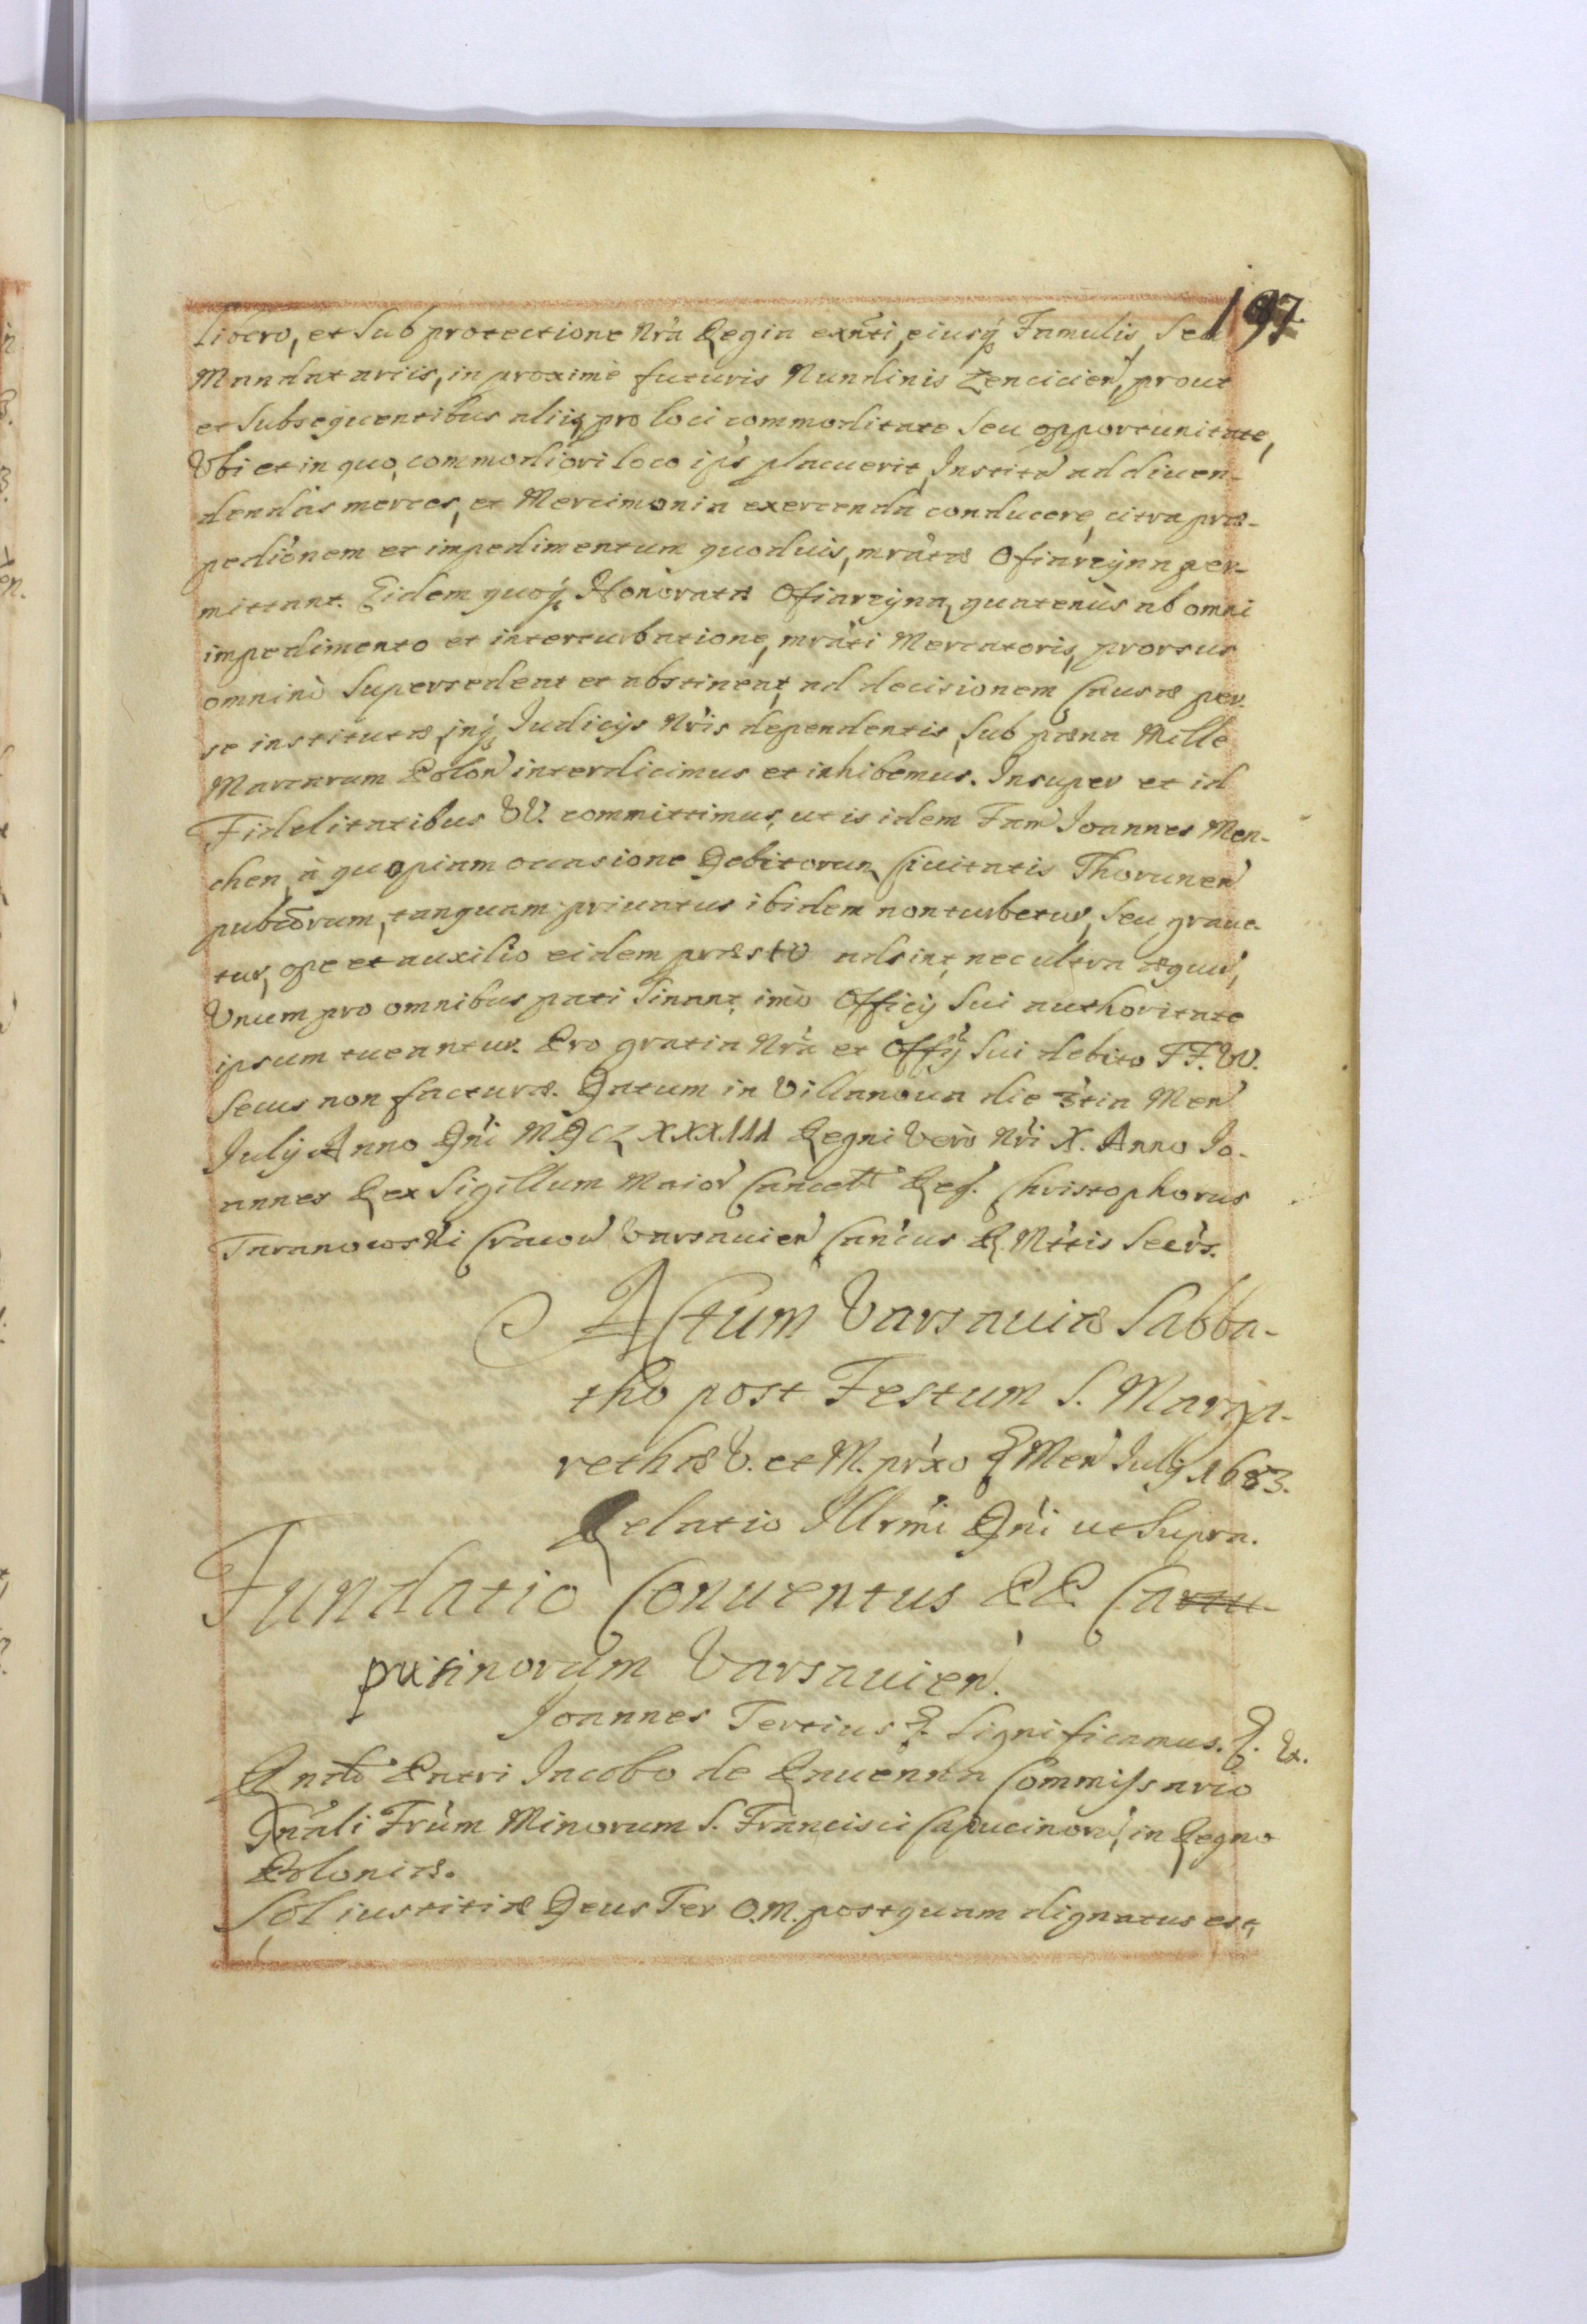 197.
libero, et Sub protectione Nrã Regia exñti, eiusq́ Famulis, Seu
Mandatariis, in proximè futuris Nundinis Lencicień, prout
et Subsequentibus aliis, pro loci commoditate Seu opportunitate,
Vbi et in quo, commodiori loco ipś placuerit, Institã ad diuen-
dendas merces, et Mercimonia exercenda conducere, citra præ-
pedićnem et impedimentum quoduis, mratæ Ofiarzyna per-
mittant. Eidem quoq́ Honoratæ Ofiarzyna, quatenùs ab omni
impedimento et interturbatione, mrati Mercatoris, prorsus
omninò Supersedeat et abstineat, ad decisionem Causæ per
se institutæ, inq́ Iudicijs Nris dependentis, Sub pæna Mille
Marcarum Poloń interdicimus et inhibemus. Insuper et id
Fidelitatibus VV. committimus, ut is idem Fam̃ Ioannes Men-
chen, à quopiam occasione Debitorum, Ciuitatis Thoruneń
pubcorum, tanquam priuatus ibidem non turbetur, Seu graue-
tur, ope et auxilio eidem præsto adsint, nec ultra æquũ,
Vnum pro omnibus pati Sinant, imò Officij Sui authoritate
ipsum tueantur. Pro gratia Nrã et Offij Sui debito FF. VV.
Secus non facturæ. Datum in Villanoua die 3tia Meń
Iulij Anno Dñi MDCLXXXIII Regni verò Nri X. Anno Jo-
annes Rex Sigillum Maioŕ Cancell Reg. Christophorus
Taranowski Cracov̓ Varsauień Cańcus R. Mttis Secrs.
Actum Varsauiæ Sabba-
tho post Festum S. Marga-
rethæ V. et M. prxo Meń Iulij 1683.
Relatio Illrmi Dñi ut Supra.
Fundatio Conuentus PP. Cartu-
pucinorum Varsauień.
Joannes Tertius &. Significamus. &. &.
Rndo Patri Iacobo de Rauenna Commissario
Gnãli Frum Minorum S. Francisci Capucinorũ, in Regno
Poloniæ.
Sol iustitiæ Deus Ter O. M. postquam dignatus est,